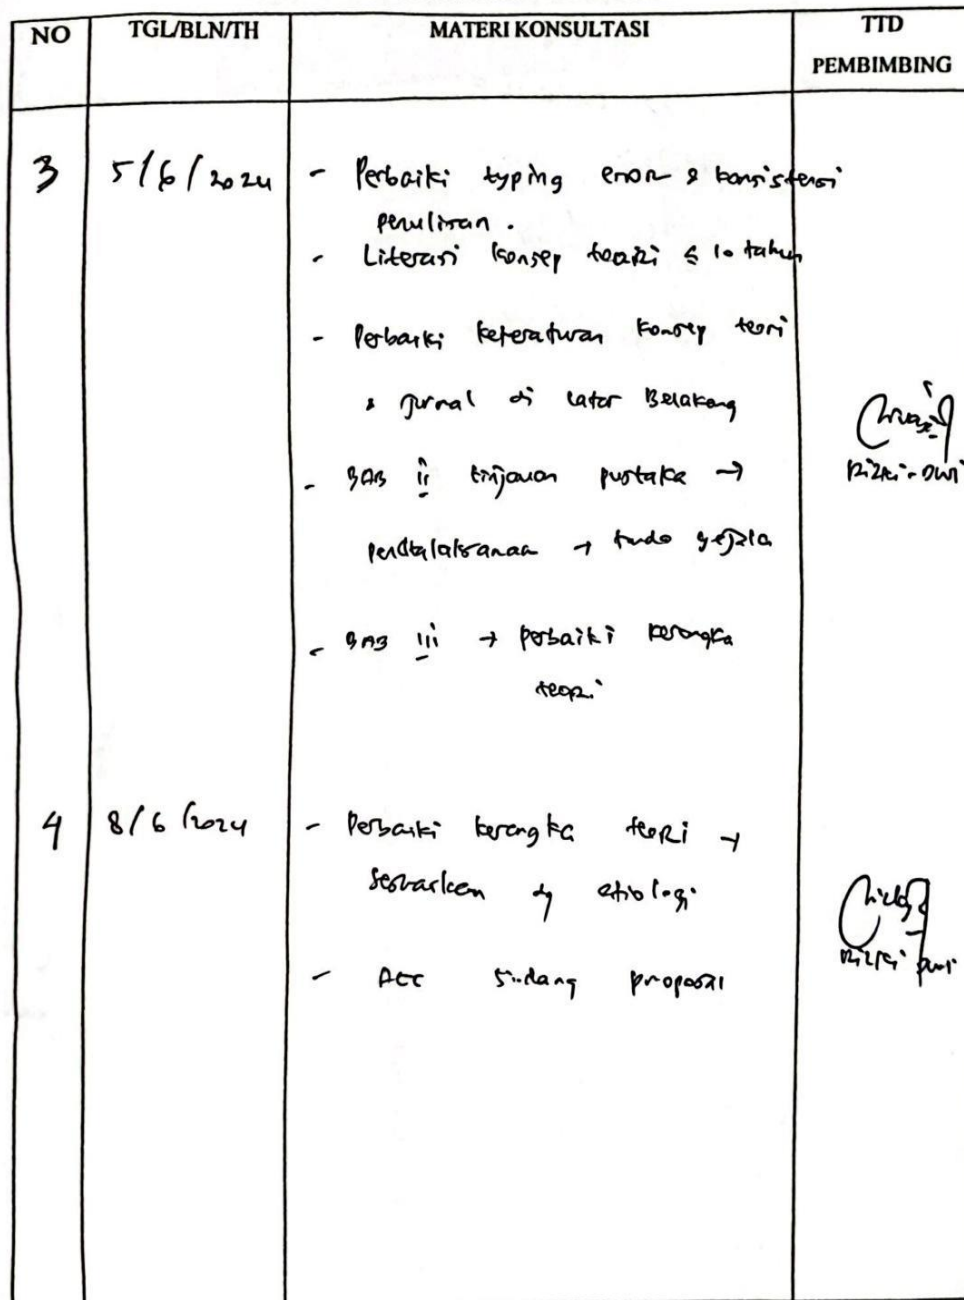 NO TGL/BLN/TH MATERI KONSULTASI TTD
PEMBIMBING
3 5/6/2024 - Perbaiki typing error & konsistensi
penulisan.
- Literasi konsep teori ≤ 10 tahun
- Perbaiki keteraturan konsep teori
& jurnal di Latar Belakang
- BAB II tinjauan pustaka →
penatalaksanaa → tanda gejala
Rizki Dwi
- BAB III → perbaiki kerangka
teori
4 8/6/2024 - Perbaiki kerangka teori →
sesuaikan dg etiologi
Rizki Dwi
- ACC Sidang proposal